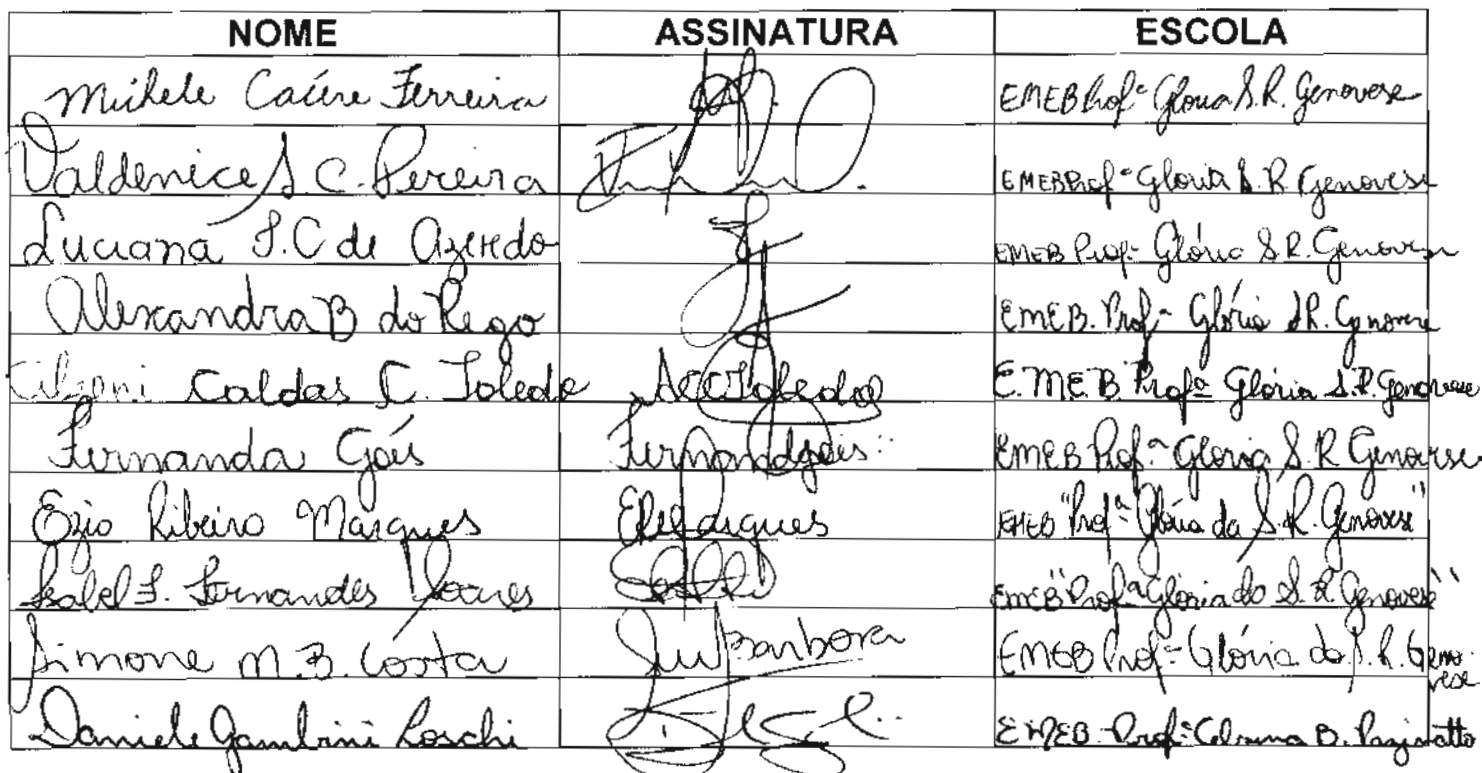 NOME ASSINATURA ESCOLA
Michele Caíres Ferreira EMEB Profª Gloria S. R. Genovese
Valdenice S. C. Pereira EMEB Profª Gloria S. R. Genovese
Luciana S. C de Azeredo EMEB Profª Glória S. R. Genovese
Alexandra B do Rego EMEB. Profª Glória S.R. Genovese
Caldas C. Toledo ACCToledo E.M.E.B. Profª Glória S.R. Genovese
Fernanda Góis Fernandagóis EMEB Profª Gloria S. R Genovese
Ezio Ribeiro Marques EMEB "Profª Glória da S. R. Genovese"
Isabel F. Fernandes Soares EMEB "Profª Glória da S. R. Genovese"
Simone M. B. Costa Barbosa EMEB Profª Glória da S. R. Genovese
Daniele Gambini Loschi EMEB Profª B.